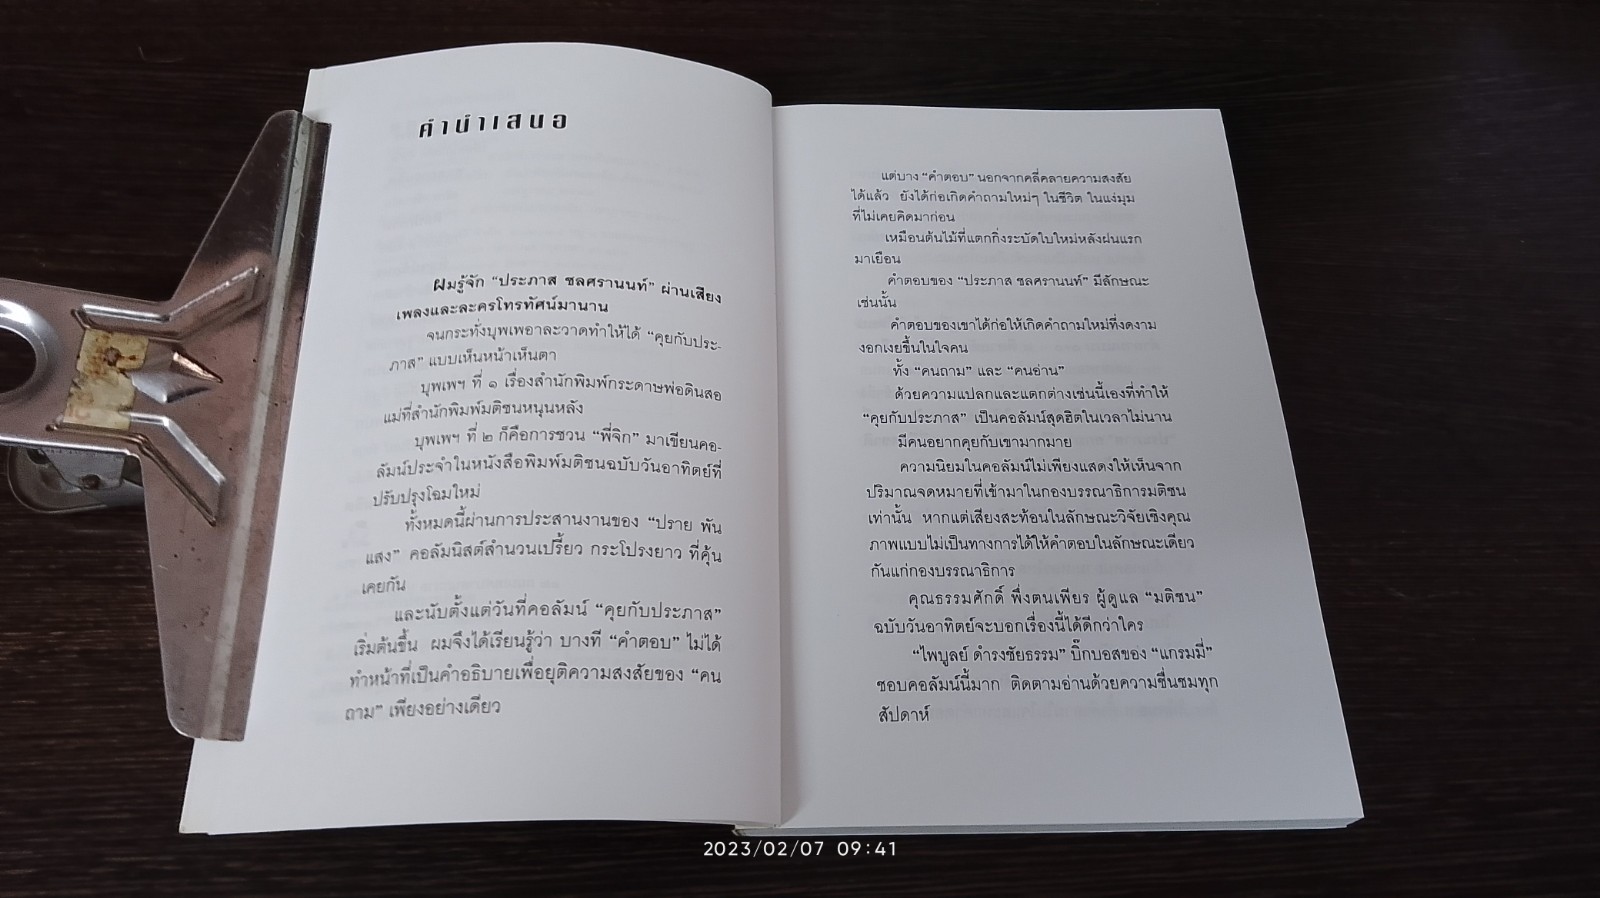 คำนำเสนอ
ผมรู้จัก “ประภาส ชลศรานนท์” ผ่านเสียง
เพลงและละครโทรทัศน์มานาน
จนกระทั่งบุพเพอาละวาดทำให้ได้ “คุยกับประ-
ภาส” แบบเห็นหน้าเห็นตา
บุพเพฯ ที่ ๑ เรื่องสำนักพิมพ์กระดาษพ่อดินสอ
แม่ที่สำนักพิมพ์มติชนหนุนหลัง
บุพเพฯ ที่ ๒ ก็คือการชวน “พี่จิก” มาเขียนคอ-
ลัมน์ประจำในหนังสือพิมพ์มติชนฉบับวันอาทิตย์ที่
ปรับปรุงโฉมใหม่
ทั้งหมดนี้ผ่านการประสานงานของ “ปราย พัน
แสง” คอลัมนิสต์สำนวนเปรี้ยว กระโปรงยาว ที่คุ้น
เคยกัน
และนับตั้งแต่วันที่คอลัมน์ “คุยกับประภาส”
เริ่มต้นขึ้น ผมจึงได้เรียนรู้ว่า บางที “คำตอบ” ไม่ได้
ทำหน้าที่เป็นคำอธิบายเพื่อยุติความสงสัยของ “คน
ถาม” เพียงอย่างเดียว
แต่บาง “คำตอบ” นอกจากคลี่คลายความสงสัย
ได้แล้ว ยังได้ก่อเกิดคำถามใหม่ๆ ในชีวิต ในแง่มุม
ที่ไม่เคยคิดมาก่อน
เหมือนต้นไม้ที่แตกกิ่งระบัดใบใหม่หลังฝนแรก
มาเยือน
คำตอบของ “ประภาส ชลศรานนท์” มีลักษณะ
เช่นนั้น
คำตอบของเขาได้ก่อให้เกิดคำถามใหม่ที่งดงาม
งอกเงยขึ้นในใจคน
ทั้ง “คนถาม” และ “คนอ่าน”
ด้วยความแปลกและแตกต่างเช่นนี้เองที่ทำให้
“คุยกับประภาส” เป็นคอลัมน์สุดฮิตในเวลาไม่นาน
มีคนอยากคุยกับเขามากมาย
ความนิยมในคอลัมน์ไม่เพียงแสดงให้เห็นจาก
ปริมาณจดหมายที่เข้ามาในกองบรรณาธิการมติชน
เท่านั้น หากแต่เสียงสะท้อนในลักษณะวิจัยเชิงคุณ
ภาพแบบไม่เป็นทางการได้ให้คำตอบในลักษณะเดียว
กันแก่กองบรรณาธิการ
คุณธรรมศักดิ์ พึ่งตนเพียร ผู้ดูแล “มติชน”
ฉบับวันอาทิตย์จะบอกเรื่องนี้ได้ดีกว่าใคร
“ไพบูลย์ ดำรงชัยธรรม” บิ๊กบอสของ “แกรมมี่”
ชอบคอลัมน์นี้มาก ติดตามอ่านด้วยความชื่นชมทุก
สัปดาห์
2023/02/07 09:41